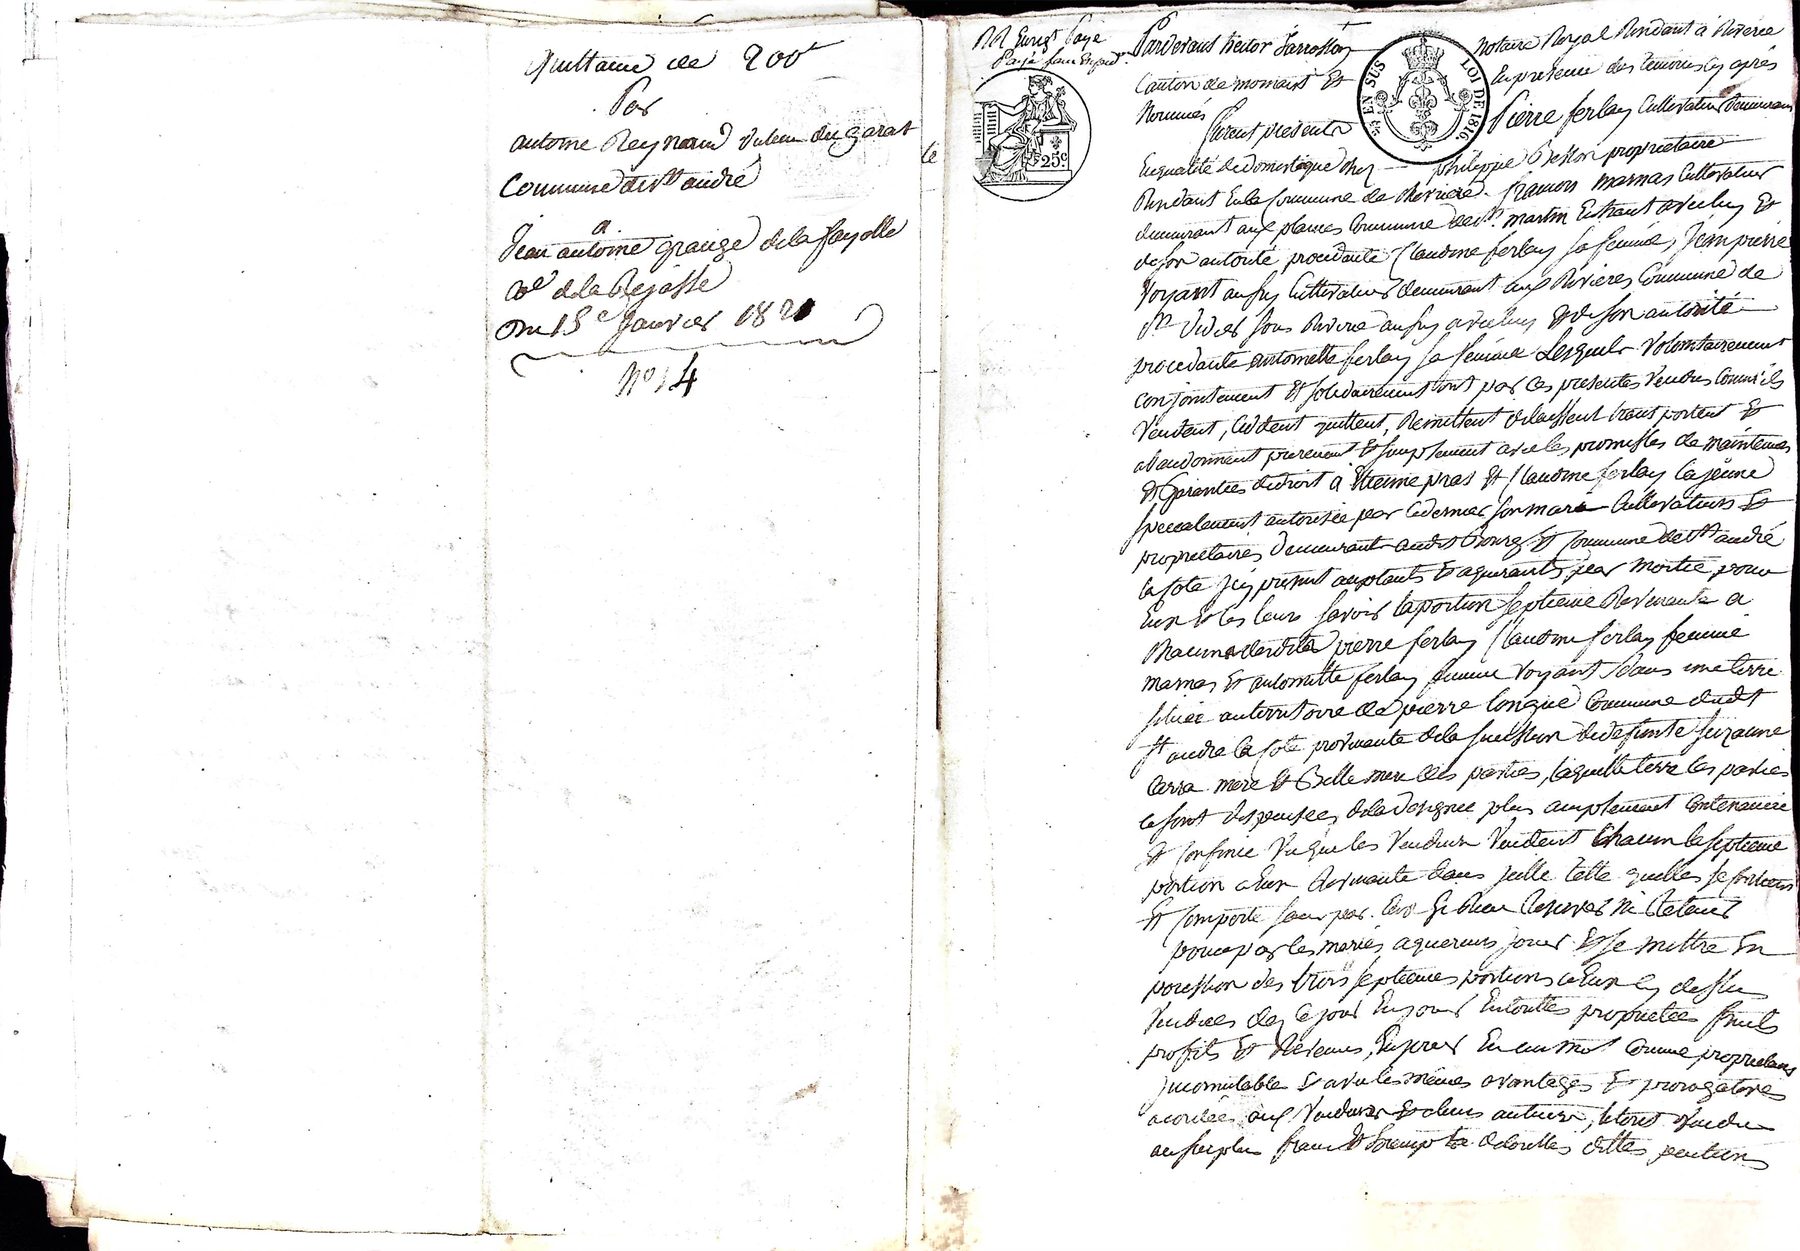 Quittance de 200f
Par
antoine Reynaud du garat
Commune de St andré
a
Jean antoine grange de la fayolle
de la Rejasse
Du 15e Janvier 1821
No 14
Payé
Pardevant notaire Royal Résidant à Riverie
Canton de mornant Et En presence des temoins cy après
Nommés
furent présents Pierre ferlay Cultivateur Demeurant
En qualité de domestique chez philippe Besson proprietaire
Résidant En la Commune de Riverie. francois marnas Cultivateur
demeurant aux plaines Commune de St martin avec luy Et
de son autorité procedante Claudine ferlay sa femme, Jean pierre
Voyant aussy Cultivateur demeurant aux Rivieres Commune de
St Didier sous Riverie aussy avec luy Et de son autorité
procedante antoinette ferlay sa femme Lesquels Volontairement
conjointement Et solidairement ont par ces presentes Vendus Comm'ils
Vendent, Cèdent quittent, Remettent delaissent transportent Et
abandonnent purement Et simplement avec les promesses de maintenue
Et Garanties de droit à Etienne pras Et Claudine ferlay la jeune
specialement autorisée par ce dernier son mari Cultivateurs Et
proprietaires demeurants audit bourg Et Commune de St andré
la cote Icy present acceptants Et aquerants par moitié pour
Eux Et les leurs savoir la portion septieme Revenante a
Chacun desdits pierre ferlay Claudine ferlay femme
marnas Et antoinette ferlay femme Voyant dans une terre
située au territoire de pierre longue Commune dudit
St andré la cote provenante de la succession de defunte Suzanne
mere Et Belle mere des parties, laquelle terre les parties
se sont dispensées de la designer plus amplement Contenance
Et Confinée Vu que les Vendeurs Vendent Chacun la septieme
portion a Eux Revenante dans Icelle telle quelle se
Et Comporte sans par Eux Reserver ni Retenir
pour par les mariés aquereurs jouir Et se mettre En
possession des trois septiemes portions a Eux cy dessus
Vendues dez ce jour En jouir En toutes proprietées fruits
profits Et Revenus, En jouir En un mot Comme proprietaires
Incomutable Et avec les mêmes avantages Et prerogatives
accordées aux Vendeurs Et a leurs auteurs, le tout Vendu
au surplus franc Et Exempt de touttes dittes
EN SUS
LOI DE 1816
25c